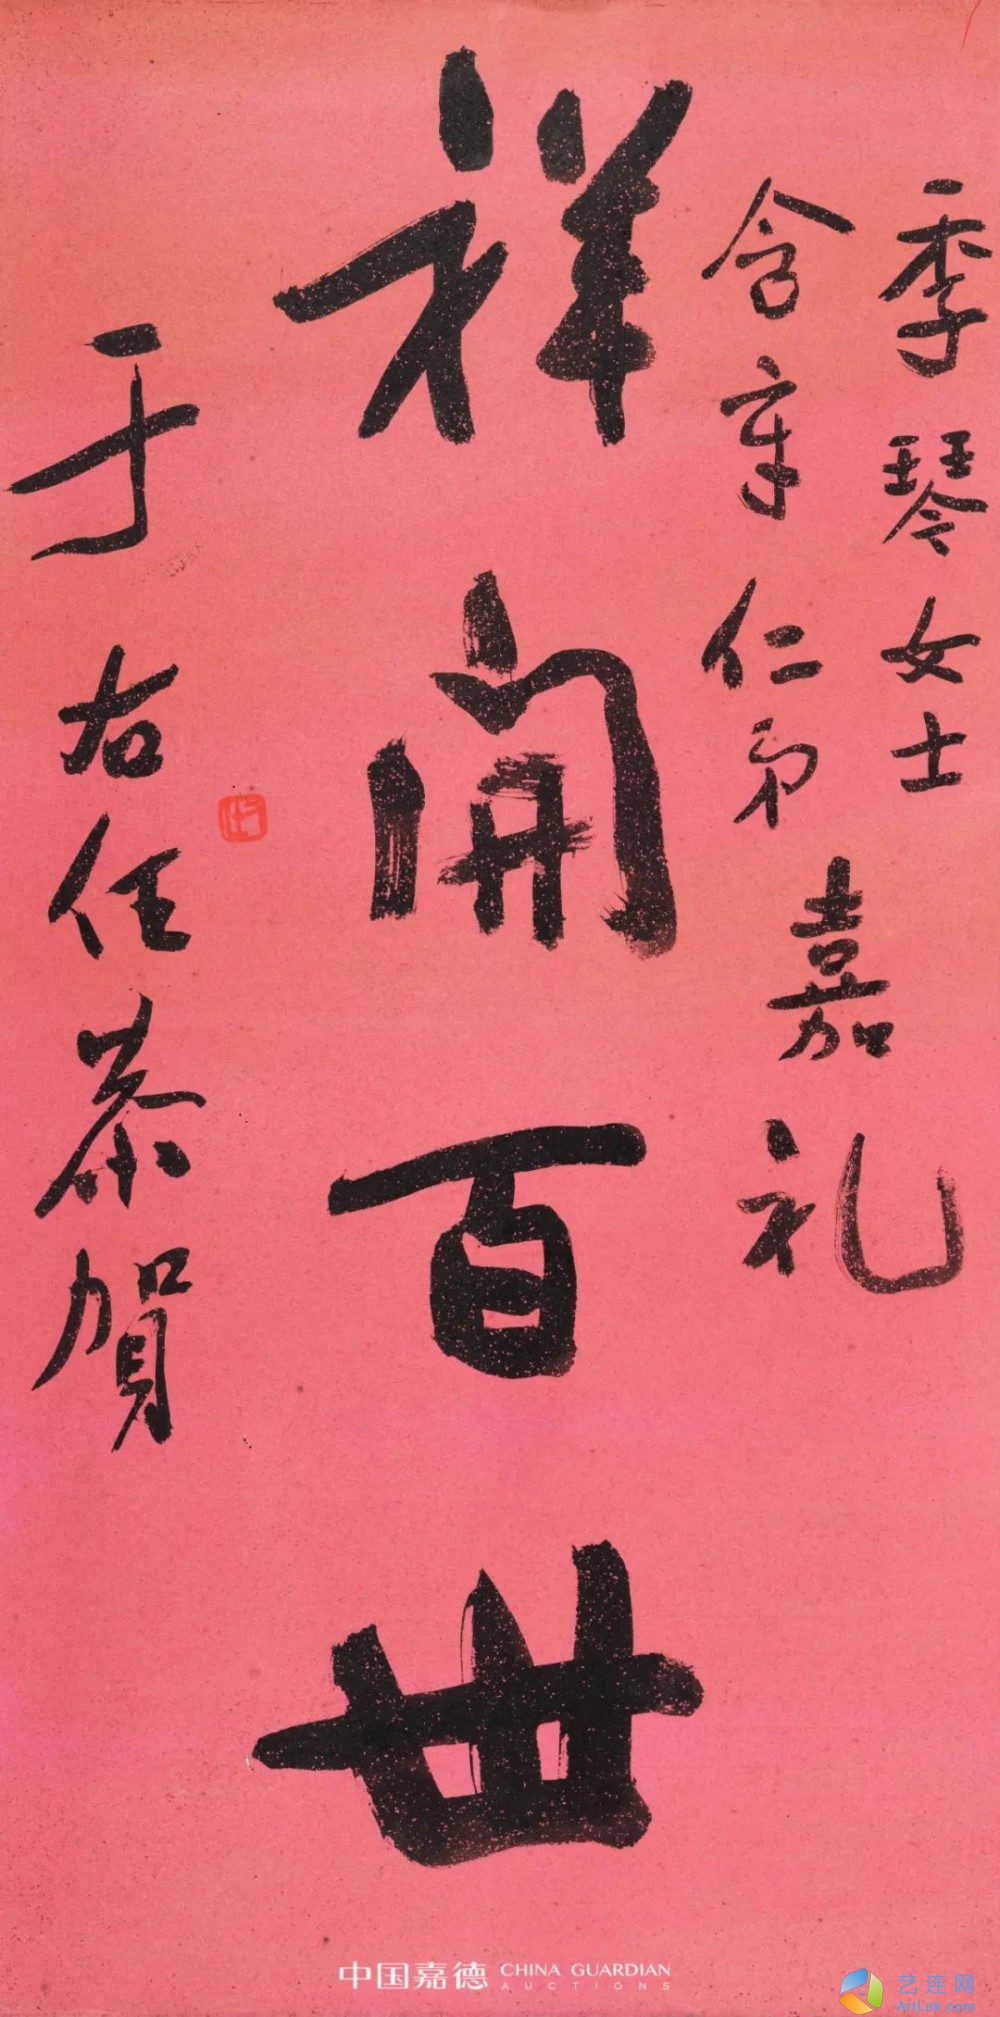 季琴女士
含章仁弟
嘉礼
祥開百世
于右任恭賀
中国嘉德 CHINA GUARDIAN
AUCTIONS
艺连网
ArtLnk.com